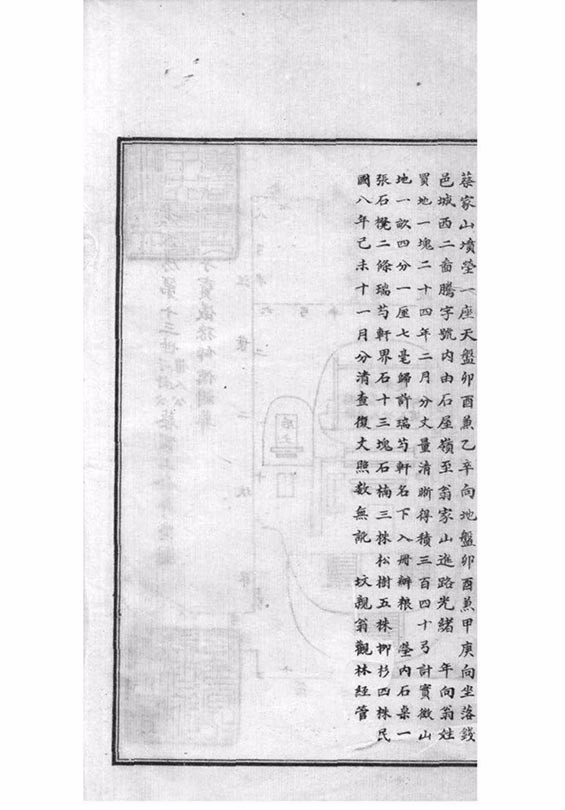 蔡家山墳塋一座天盤卯酉兼乙辛向地盤卯酉兼甲庚向坐落錢
邑城西二啚騰字號內由石屋嶺至翁家山進路光緒 年向翁姓
買地一塊二十四年二月分丈量清晰得積三百四十弓計實徵山
地一畝四分一厘七毫歸許瑞芍軒名下入冊辦粮 塋內石桌一
張石櫈二條瑞芍軒界石十三塊石楠三株松樹五株柳杉四株民
國八年己未十一月分清查復丈照数無訛 坟親翁觀林經管